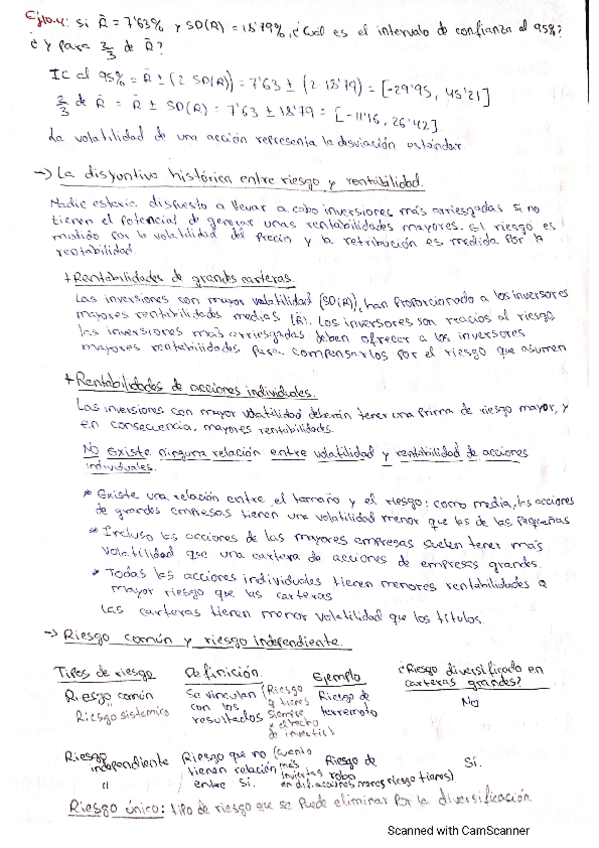 Ej10.4: Si R̄ = 7'63% y SD(R) = 18'79%, ¿Cuál es el intervalo de confianza al 95%?
¿Y para 2/3 de R̄?
IC al 95% = R̄ ± (2 SD(R)) = 7'63 ± (2 18'79) = [-29'95, 45'21]
2/3 de R̄ = R̄ ± SD(R) = 7'63 ± 18'79 = [-11'16, 26'42]
La volatilidad de una acción representa la desviación estándar
→ La disyuntiva histórica entre riesgo y rentabilidad.
Nadie estaría dispuesto a llevar a cabo inversiones más arriesgadas si no
tienen el potencial de generar unas rentabilidades mayores. El riesgo es
medido por la volatilidad del precio y la retribución es medida por la
rentabilidad.
+ Rentabilidades de grandes carteras.
Las inversiones con mayor volatilidad (SD(R)), han proporcionado a los inversores
mayores rentabilidades medias (R̄). Los inversores son reacios al riesgo
las inversiones más arriesgadas deben ofrecer a los inversores
mayores rentabilidades para compensarlos por el riesgo que asumen
+ Rentabilidades de acciones individuales.
Las inversiones con mayor volatilidad deberían tener una prima de riesgo mayor, y
en consecuencia, mayores rentabilidades.
No existe ninguna relación entre volatilidad y rentabilidad de acciones
individuales.
* Existe una relación entre el tamaño y el riesgo: como media, las acciones
de grandes empresas tienen una volatilidad menor que las de las pequeñas
* Incluso las acciones de las mayores empresas suelen tener más
volatilidad que una cartera de acciones de empresas grandes.
* Todas las acciones individuales tienen menores rentabilidades a
mayor riesgo que las carteras
Las carteras tienen menor volatilidad que los títulos.
→ Riesgo común y riesgo independiente.
Tipos de riesgo Definición Ejemplo ¿Riesgo diversificado en
carteras grandes?
Riesgo común Se vinculan (Riesgo Riesgo de No
" con los q tienes terremoto
Riesgo sistémico resultados siempre
de invertir)
Riesgo Riesgo que no (cuanto Riesgo de Sí.
independiente tienen relación más robo
" entre sí. inviertas en dif. acciones menos riesgo tienes)
Riesgo único: tipo de riesgo que se puede eliminar por la diversificación
Scanned with CamScanner